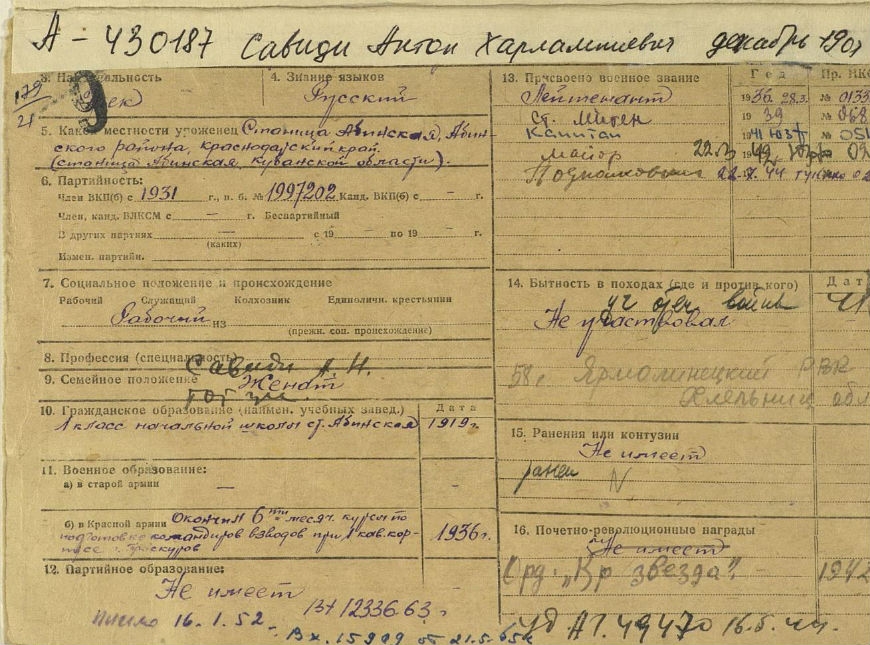 А-430187 Савиди Антон Харлампиевич декабрь 190
3. Национальность
4. Знание языков
179/21
Русский
5. Какой местности уроженец Станица Абинская, Абин-
ского района, Краснодарский край.
(станица Абинская, Кубанской области).
6. Партийность:
Член ВКП(б) с 1931 г., п. б. № 1997202 Канд. ВКП(б) с — г.
Член, канд. ВЛКСМ с — г. Беспартийный
В других партиях — с 19 — по 19 — г.
(каких)
Измен. партийн.
7. Социальное положение и происхождение
Рабочий Служащий Колхозник Единоличн. крестьянин
Рабочий из
(прежн. соц. происхождение)
8. Профессия (специальность)
Савиди А. Н.
9. Семейное положение Женат
10. Гражданское образование (наимен. учебных завед.) Дата
1 класс начальной школы ст. Абинская 1919 г.
11. Военное образование:
а) в старой армии —
б) в Красной армии Окончил 6ти месяч. курсы по
подготовке командиров взводов при 1 кав. кор-
пусе г. Проскуров 1936 г.
12. Партийное образование:
Не имеет
письмо 16.1.52.
Вх 12336 63 г
Вх. 15909 от 21.5.65
13. Присвоено военное звание Год Пр. НКО
Лейтенант 1936 28.3. № 0133
Ст. Лит-ен 19 39 № 068
Капитан 1941 № 051
Майор 22. 1942 № 02
Подполковник 22.7.44
14. Бытность в походах (где и против кого) Дат
уч отеч войны 41
Не участвовал
58г Ярмолинецкий РВК
обл
15. Ранения или контузии
Не имеет
ранен
16. Почетно-революционные награды
Не имеет
Орд. „Кр звезда" 1942
Уд А7.49470 16.5.44.